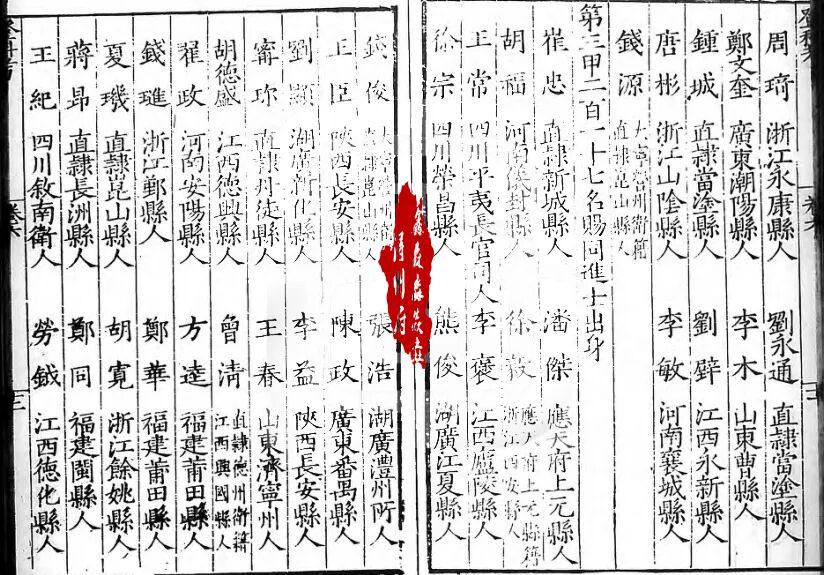 周琦 浙江永康縣人 劉永通 直隸當塗縣人
鄭文奎 廣東潮陽縣人 李木 山東曹縣人
鍾城 直隸當塗縣人 劉璧 江西永新縣人
唐彬 浙江山陰縣人 李敏 河南襄城縣人
錢源 大寧營州衛籍直隸崑山縣人
第三甲二百一十七名賜同進士出身
崔忠 直隸新城縣人 潘傑 應天府上元縣人
胡福 河南儀封縣人 徐毅 應天府上元縣籍浙江西安縣人
王常 四川平夷長官司人 李褒 江西廬陵縣人
徐宗 四川榮昌縣人 熊俊 湖廣江夏縣人
錢俊 直隸崑山縣人 張浩 湖廣澧州所人
王臣 陝西長安縣人 陳政 廣東番禺縣人
劉顯 湖廣新化縣人 李益 陝西長安縣人
甯珍 直隸丹徒縣人 王春 山東濟寧州人
胡德盛 江西德興縣人 曾清 直隸德州衛籍江西興國縣人
翟政 河南安陽縣人 方逵 福建莆田縣人
錢璡 浙江鄞縣人 鄭華 福建莆田縣人
夏璣 直隸崑山縣人 胡寬 浙江餘姚縣人
蔣昂 直隸長洲縣人 鄭同 福建閩縣人
王紀 四川敘南衛人 勞鉞 江西德化縣人
卷六
三
卷六
三